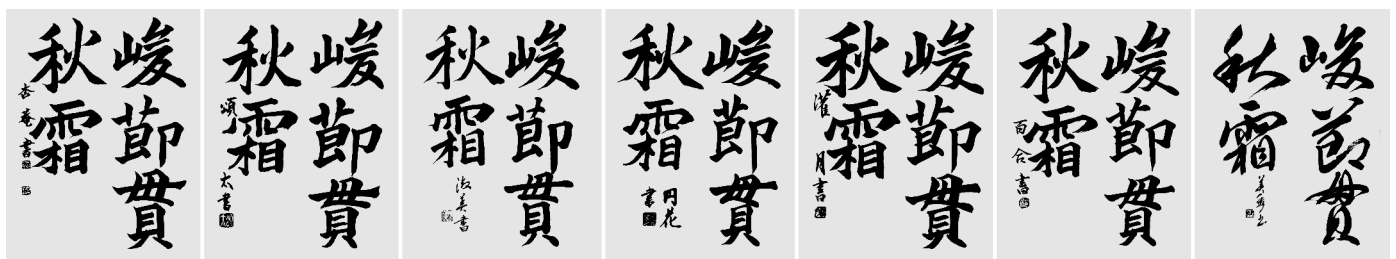 峻節貫
秋霜
杏菴書
峻節貫
秋霜
頌太書
峻節貫
秋霜
淑美書
峻節貫
秋霜
円花
書
峻節貫
秋霜
濯月書
峻節貫
秋霜
百合書
峻節貫
秋霜